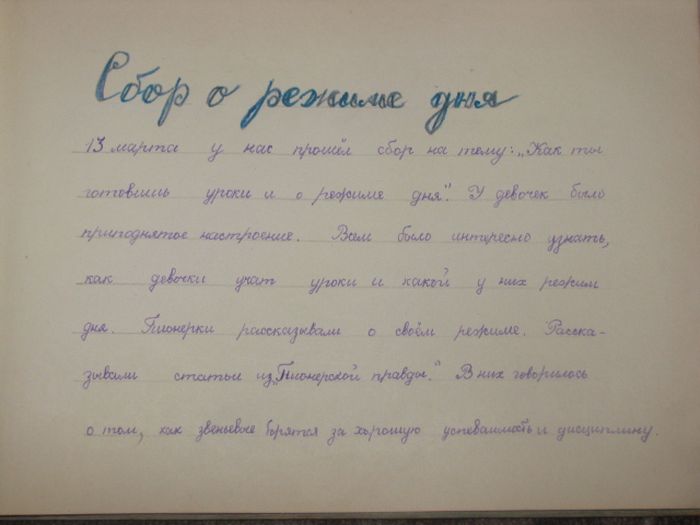 Сбор о режиме дня
13 марта у нас прошёл сбор на тему: „Как ты
готовишь уроки и о режиме дня". У девочек было
приподнятое настроение. Всем было интересно узнать,
как девочки учат уроки и какой у них режим
дня. Пионерки рассказывали о своём режиме. Расска-
зывали статьи из „Пионерской правды." В них говорилось
о том, как звеньевые борятся за хорошую успеваимость и дисциплину.